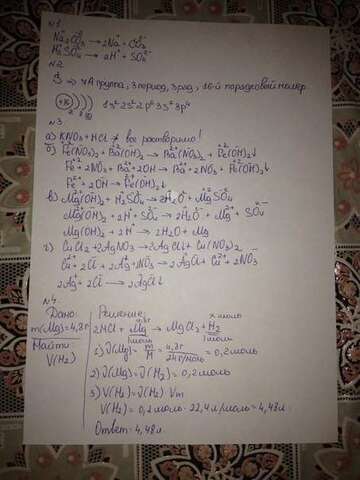 N1.
Na₂CO₃ → 2Na⁺ + CO₃²⁻
H₂SO₄ → 2H⁺ + SO₄²⁻
N2.
S ⇒ VIA группа, 3 период, 3 ряд, 16-й порядковый номер
+16 ) ) ) 1s²2s²2p⁶3s²3p⁴
N3.
а) KNO₃ + HCl ≠ все растворимо!
б) Fe(NO₃)₂ + Ba(OH)₂ → Ba(NO₃)₂ + Fe(OH)₂↓
Fe²⁺ + 2NO₃⁻ + Ba²⁺ + 2OH⁻ → Ba²⁺ + 2NO₃⁻ + Fe(OH)₂↓
Fe²⁺ + 2OH⁻ → Fe(OH)₂↓
в) Mg(OH)₂ + H₂SO₄ → 2H₂O + MgSO₄
Mg(OH)₂ + 2H⁺ + SO₄²⁻ → 2H₂O + Mg²⁺ + SO₄²⁻
Mg(OH)₂ + 2H⁺ → 2H₂O + Mg
г) CuCl₂ + 2AgNO₃ → 2AgCl↓ + Cu(NO₃)₂
Cu²⁺ + 2Cl⁻ + 2Ag⁺ + 2NO₃⁻ → 2AgCl↓ + Cu²⁺ + 2NO₃⁻
2Ag⁺ + 2Cl⁻ → 2AgCl↓
N4.
Дано: Решение:
m(Mg)=4,8г 2HCl + Mg → MgCl₂ + H₂
Найти: 1моль 1моль
V(H₂) 1) ν(Mg) = m/M = 4,8г/24г/моль = 0,2моль
2) ν(Mg) = ν(H₂) = 0,2моль
3) V(H₂) = ν(H₂) · Vm
V(H₂) = 0,2моль · 22,4л/моль = 4,48л.
Ответ: 4,48л.